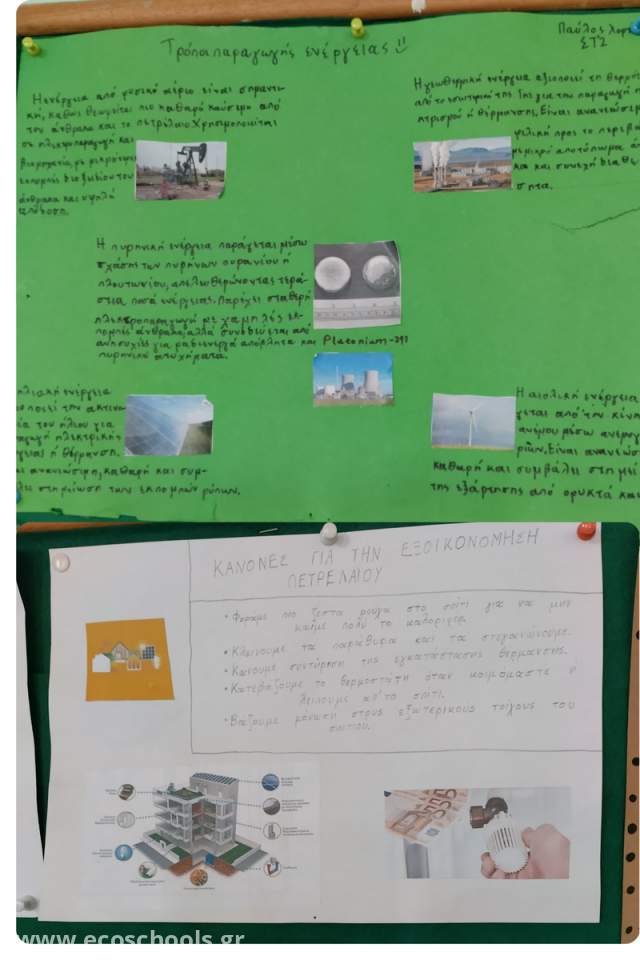 Τρόποι παραγωγής ενέργειας
Παύλος
ΣΤ2
Η ενέργεια από φυσικό αέριο είναι σημαντι-
κή, καθώς θεωρείται πιο καθαρό καύσιμο από
τον άνθρακα και το πετρέλαιο. Χρησιμοποιείται
σε ηλεκτροπαραγωγή και
βιομηχανία, με μικρότερες
εκπομπές διοξειδίου του
άνθρακα και υψηλή
απόδοση.
Η γεωθερμική ενέργεια αξιοποιεί τη θερμό
από το εσωτερικό της Γης για την παραγωγή
κτρισμού ή θέρμανσης. Είναι ανανεώσιμ
φιλική προς το περιβά
με μικρό αποτύπωμα
και συνεχή διαθε
σητα.
Η πυρηνική ενέργεια παράγεται μέσω
σχάσης των πυρήνων ουρανίου ή
πλουτωνίου, απελευθερώνοντας τερά-
στια ποσά ενέργειας. Παρέχει σταθερή
ηλεκτροπαραγωγή με χαμηλές εκ-
πομπές άνθρακα, αλλά συνοδεύεται από
ανησυχίες για ραδιενεργά απόβλητα και
πυρηνικά ατυχήματα.
Platonium-
ηλιακή ενέργεια
οποιεί την ακτινο
ία του ήλιου για
αγωγή ηλεκτρικής
γειας ή θέρμανση.
ι ανανεώσιμη, καθαρή και συμ-
λει στη μείωση των εκπομπών ρύπων.
Η αιολική ενέργεια
γεται από την κίνη
ανέμου μέσω ανεμογ
ριών. Είναι ανανεώσ
καθαρή και συμβάλει στη μεί
της εξάρτησης από ορυκτά και
ΚΑΝΟΝΕΣ ΓΙΑ ΤΗΝ ΕΞΟΙΚΟΝΟΜΗΣΗ
ΠΕΤΡΕΛΑΙΟΥ
• Φοραμε πιο ζεστα ρουχα στο σπίτι για να μην
καίμε πολύ το καλοριφερ.
• Κλεινουμε τα παράθυρα και τα στεγανώνουμε.
• Κανουμε συντήρηση της εγκατάστασης θερμανσης.
• Κατεβάζουμε το θερμοστάτη όταν κοιμόμαστε ή
λειπουμε απ'το σπίτι.
• Βαζουμε μόνωση στους εξωτερικους τοίχους του
σπιτιου.
www.ecoschools.gr